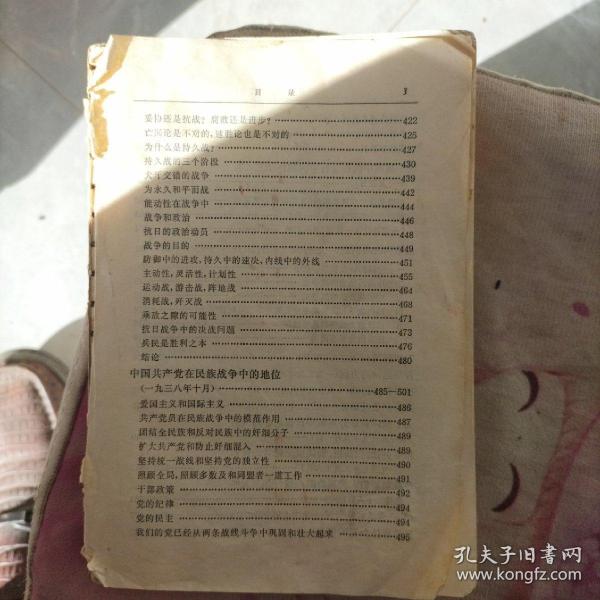 目录 3
妥协还是抗战？腐败还是进步？ 422
亡国论是不对的，速胜论也是不对的 425
为什么是持久战？ 427
持久战的三个阶段 430
犬牙交错的战争 439
为永久和平而战 442
能动性在战争中 444
战争和政治 446
抗日的政治动员 448
战争的目的 449
防御中的进攻，持久中的速决，内线中的外线 451
主动性，灵活性，计划性 455
运动战，游击战，阵地战 464
消耗战，歼灭战 468
乘敌之隙的可能性 471
抗日战争中的决战问题 473
兵民是胜利之本 476
结论 480
中国共产党在民族战争中的地位
（一九三八年十月） 485—501
爱国主义和国际主义 486
共产党员在民族战争中的模范作用 487
团结全民族和反对民族中的奸细分子 489
扩大共产党和防止奸细混入 489
坚持统一战线和坚持党的独立性 490
照顾全局，照顾多数及和同盟者一道工作 491
干部政策 492
党的纪律 494
党的民主 494
我们的党已经从两条战线斗争中巩固和壮大起来 495
孔夫子旧书网
www.kongfz.com